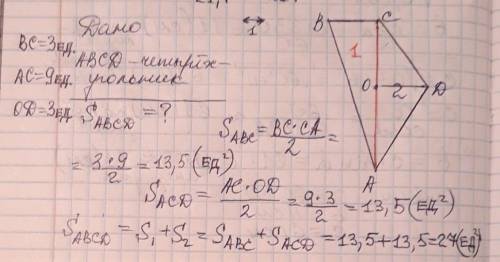 Дано
BC=3ед.
ABCD - четырёх-
AC=9ед.
угольник
OD=3ед.
S_ABCD = ?
1
B
C
1
O
2
D
A
S_ABC = BC·CA/2 =
= 3·9/2 = 13,5 (ЕД²)
S_ACD = AC·OD/2 = 9·3/2 = 13,5 (ЕД²)
S_ABCD = S₁+S₂ = S_ABC + S_ACD = 13,5+13,5=27(ЕД²)